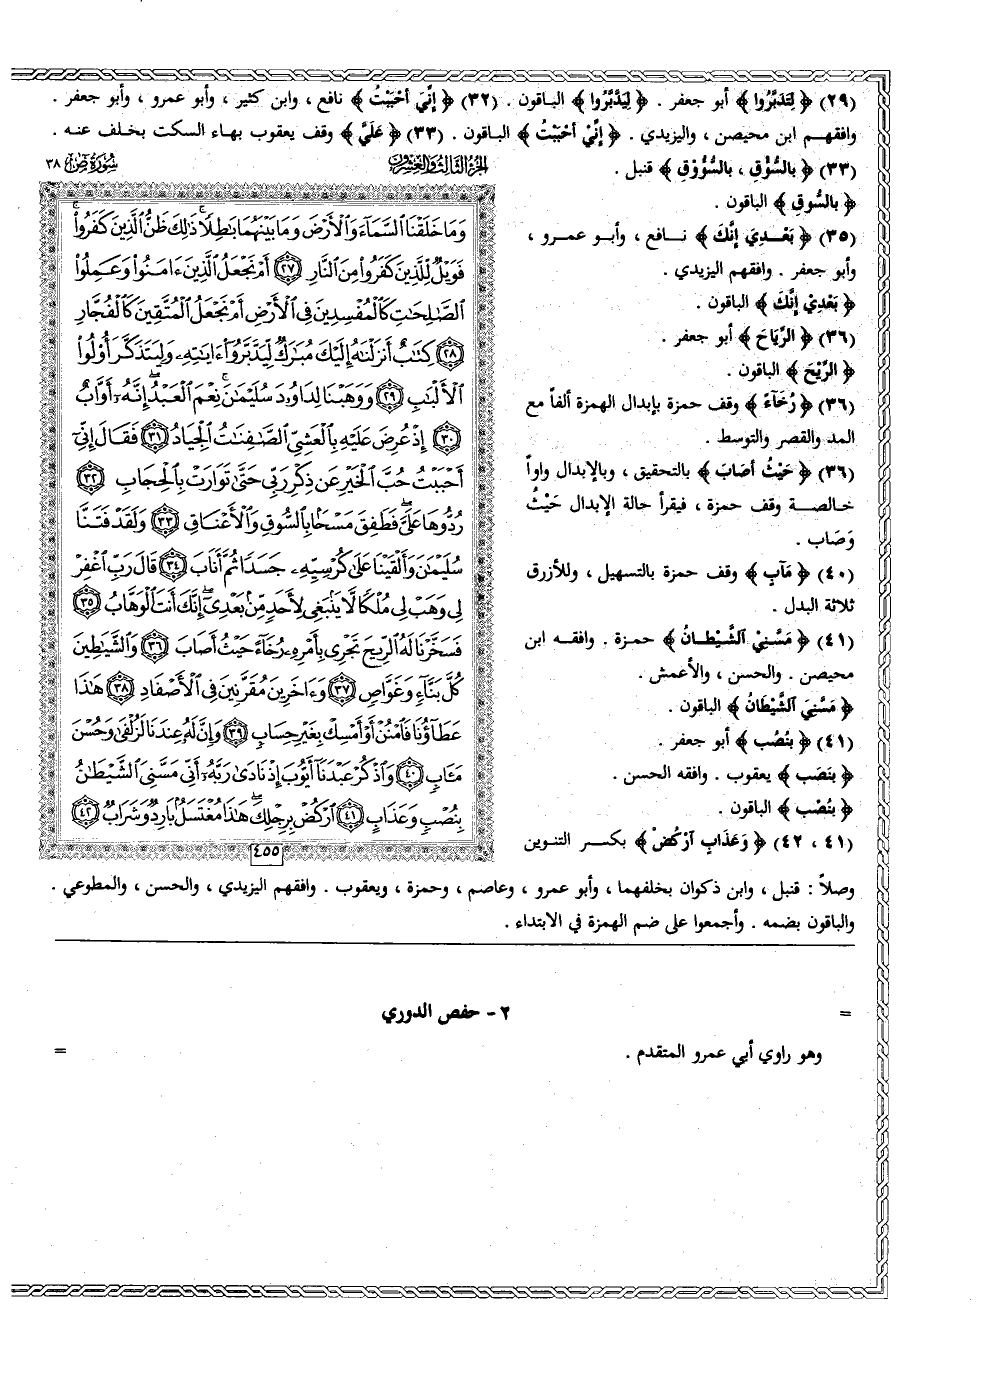 (٢٩) ﴿ لِتَدَبَّرُوا ﴾ أبو جعفر . ﴿ لِيَدَّبَّرُوا ﴾ الباقون . (٣٢) ﴿ إِنِّيَ أَحْبَبْتُ ﴾ نافع ، وابن كثير ، وأبو عمرو ، وأبو جعفر .
وافقهم ابن محيصن ، واليزيدي . ﴿ إِنِّيْ أَحْبَبْتُ ﴾ الباقون . (٣٣) ﴿ عَلَيَّ ﴾ وقف يعقوب بهاء السكت بخلف عنه .
(٣٣) ﴿ بالسُّؤْقِ ، بالسُّؤُوْقِ ﴾ قنبل .
﴿ بالسُّوقِ ﴾ الباقون .
(٣٥) ﴿ بَعْدِيَ إِنَّكَ ﴾ نافع ، وأبو عمرو ،
وأبو جعفر . وافقهم اليزيدي .
﴿ بَعْدِيْ إِنَّكَ ﴾ الباقون .
(٣٦) ﴿ الرِّيَاحَ ﴾ أبو جعفر .
﴿ الرِّيْحَ ﴾ الباقون .
(٣٦) ﴿ رُخَآءً ﴾ وقف حمزة بإبدال الهمزة ألفاً مع
المد والقصر والتوسط .
(٣٦) ﴿ حَيْثُ أَصَابَ ﴾ بالتحقيق ، وبالإبدال واواً
خالصة وقف حمزة ، فيقرأ حالة الإبدال حَيْثُ
وَصَاب .
(٤٠) ﴿ مَآبٍ ﴾ وقف حمزة بالتسهيل ، وللأزرق
ثلاثة البدل .
(٤١) ﴿ مَسَّنِيْ الشَّيْطَانُ ﴾ حمزة . وافقه ابن
محيصن . والحسن ، والأعمش .
﴿ مَسَّنِيَ الشَّيْطَانُ ﴾ الباقون .
(٤١) ﴿ بِنُصُب ﴾ أبو جعفر .
﴿ بنَصَب ﴾ يعقوب . وافقه الحسن .
﴿ بنُصْب ﴾ الباقون .
(٤١ ، ٤٢) ﴿ وَعَذَابِ ارْكُضْ ﴾ بكسر التنوين
سُورَةُ صٓ ٣٨
الجزء الثالث والعشرون
وَمَا خَلَقْنَا ٱلسَّمَآءَ وَٱلْأَرْضَ وَمَا بَيْنَهُمَا بَٰطِلًا ۚ ذَٰلِكَ ظَنُّ ٱلَّذِينَ كَفَرُوا۟ ۚ
فَوَيْلٌ لِّلَّذِينَ كَفَرُوا۟ مِنَ ٱلنَّارِ ٢٧ أَمْ نَجْعَلُ ٱلَّذِينَ ءَامَنُوا۟ وَعَمِلُوا۟
ٱلصَّٰلِحَٰتِ كَٱلْمُفْسِدِينَ فِى ٱلْأَرْضِ أَمْ نَجْعَلُ ٱلْمُتَّقِينَ كَٱلْفُجَّارِ
٢٨ كِتَٰبٌ أَنزَلْنَٰهُ إِلَيْكَ مُبَٰرَكٌ لِّيَدَّبَّرُوٓا۟ ءَايَٰتِهِۦ وَلِيَتَذَكَّرَ أُو۟لُوا۟
ٱلْأَلْبَٰبِ ٢٩ وَوَهَبْنَا لِدَاوُۥدَ سُلَيْمَٰنَ ۚ نِعْمَ ٱلْعَبْدُ ۖ إِنَّهُۥٓ أَوَّابٌ
٣٠ إِذْ عُرِضَ عَلَيْهِ بِٱلْعَشِىِّ ٱلصَّٰفِنَٰتُ ٱلْجِيَادُ ٣١ فَقَالَ إِنِّىٓ
أَحْبَبْتُ حُبَّ ٱلْخَيْرِ عَن ذِكْرِ رَبِّى حَتَّىٰ تَوَارَتْ بِٱلْحِجَابِ ٣٢
رُدُّوهَا عَلَىَّ ۖ فَطَفِقَ مَسْحًۢا بِٱلسُّوقِ وَٱلْأَعْنَاقِ ٣٣ وَلَقَدْ فَتَنَّا
سُلَيْمَٰنَ وَأَلْقَيْنَا عَلَىٰ كُرْسِيِّهِۦ جَسَدًا ثُمَّ أَنَابَ ٣٤ قَالَ رَبِّ ٱغْفِرْ
لِى وَهَبْ لِى مُلْكًا لَّا يَنۢبَغِى لِأَحَدٍ مِّنۢ بَعْدِىٓ ۖ إِنَّكَ أَنتَ ٱلْوَهَّابُ ٣٥
فَسَخَّرْنَا لَهُ ٱلرِّيحَ تَجْرِى بِأَمْرِهِۦ رُخَآءً حَيْثُ أَصَابَ ٣٦ وَٱلشَّيَٰطِينَ
كُلَّ بَنَّآءٍ وَغَوَّاصٍ ٣٧ وَءَاخَرِينَ مُقَرَّنِينَ فِى ٱلْأَصْفَادِ ٣٨ هَٰذَا
عَطَآؤُنَا فَٱمْنُنْ أَوْ أَمْسِكْ بِغَيْرِ حِسَابٍ ٣٩ وَإِنَّ لَهُۥ عِندَنَا لَزُلْفَىٰ وَحُسْنَ
مَـَٔابٍ ٤٠ وَٱذْكُرْ عَبْدَنَآ أَيُّوبَ إِذْ نَادَىٰ رَبَّهُۥٓ أَنِّى مَسَّنِىَ ٱلشَّيْطَٰنُ
بِنُصْبٍ وَعَذَابٍ ٤١ ٱرْكُضْ بِرِجْلِكَ ۖ هَٰذَا مُغْتَسَلٌۢ بَارِدٌ وَشَرَابٌ ٤٢
٤٥٥
وصلاً : قنبل ، وابن ذكوان بخلفهما ، وأبو عمرو ، وعاصم ، وحمزة ، ويعقوب . وافقهم اليزيدي ، والحسن ، والمطوعي .
والباقون بضمه . وأجمعوا على ضم الهمزة في الابتداء .
= ٢ - حفص الدوري
وهو راوي أبي عمرو المتقدم . =